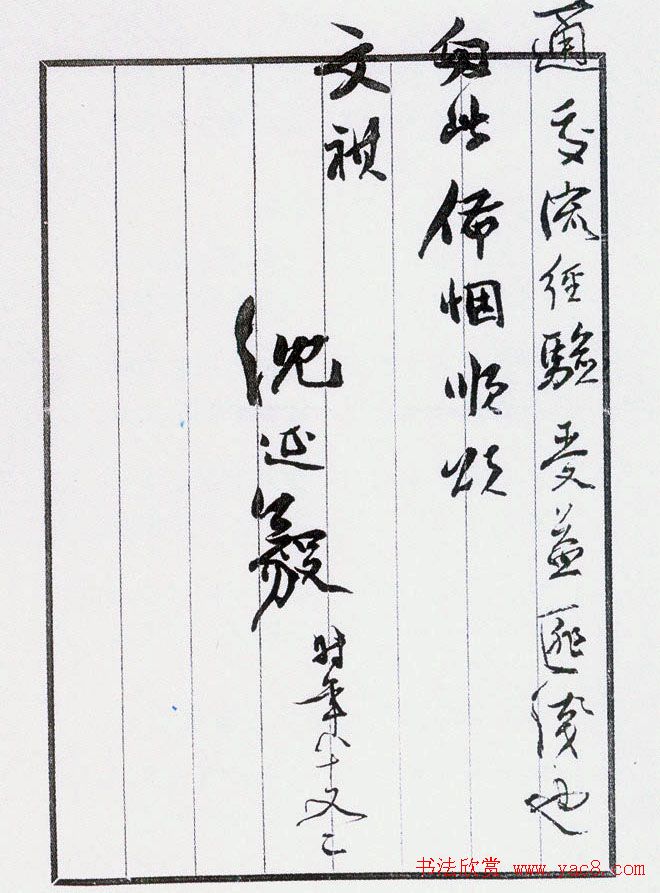 通交流經驗受益匪淺也
匆此佈悃順頌
文祺
沈延毅
時年八十又二
书法欣赏 www.yac8.com